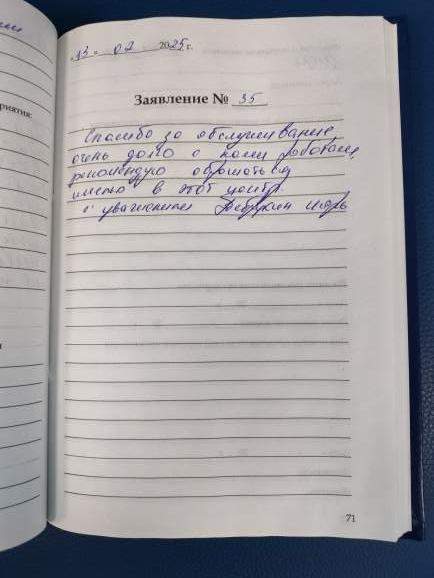 ии
риятия:
и
"13" 02 2025 г.
Заявление № 35
Спасибо за обслуживание
очень долго с нами работали,
рекомендую обращаться
именно в этот центр.
с уважением Игорь
71